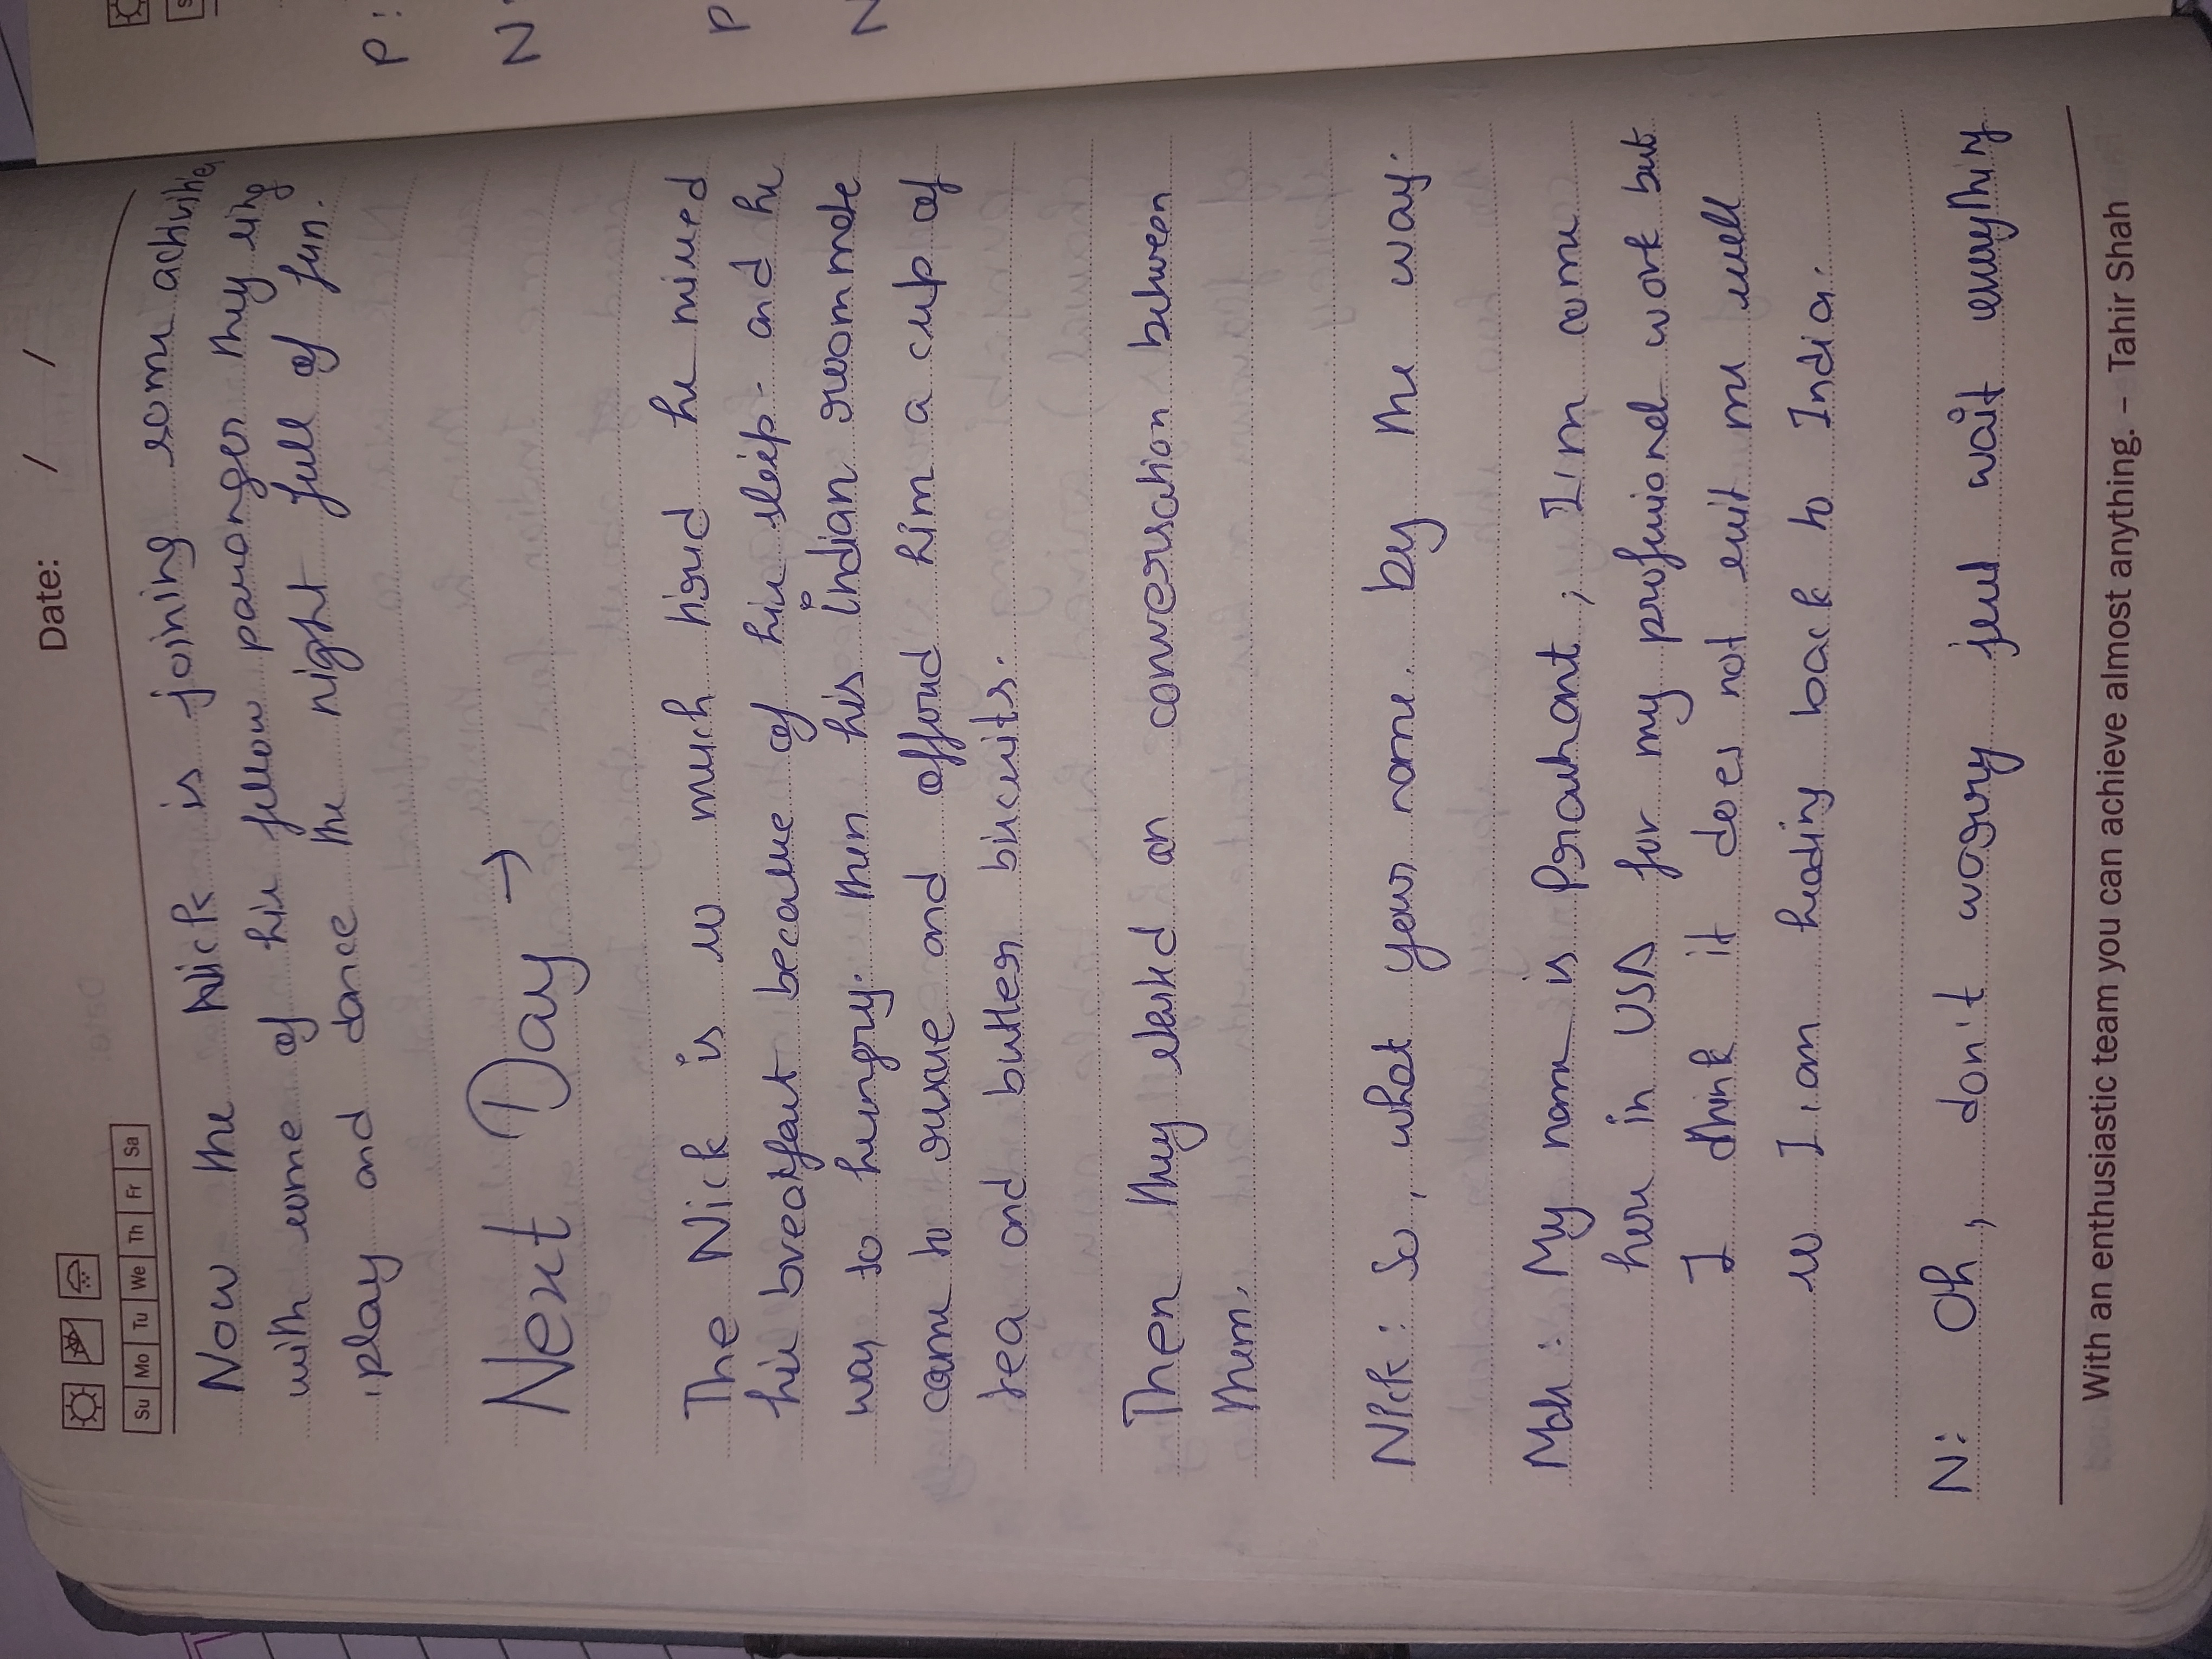 Date: / /
Su Mo Tu We Th Fr Sa
Now the Nick is joining some activities
with some of his fellow passanger they sing
play and dance the night full of fun.
Next Day →
The Nick is so much tired he missed
his breakfast because of his sleep. and he
was so hungry. then his Indian roommate
came to rescue and offered him a cup of
tea and butter biscuits.
Then they started an conversation between
them.
Nick: So, what your name by the way.
Mah: My name is Prashant, I'm came
here in USA for my professional work but
I think it does not suit me well
so I am heading back to India.
N: Oh, don't worry just wait everything
With an enthusiastic team you can achieve almost anything. – Tahir Shah
P:
N:
P
N